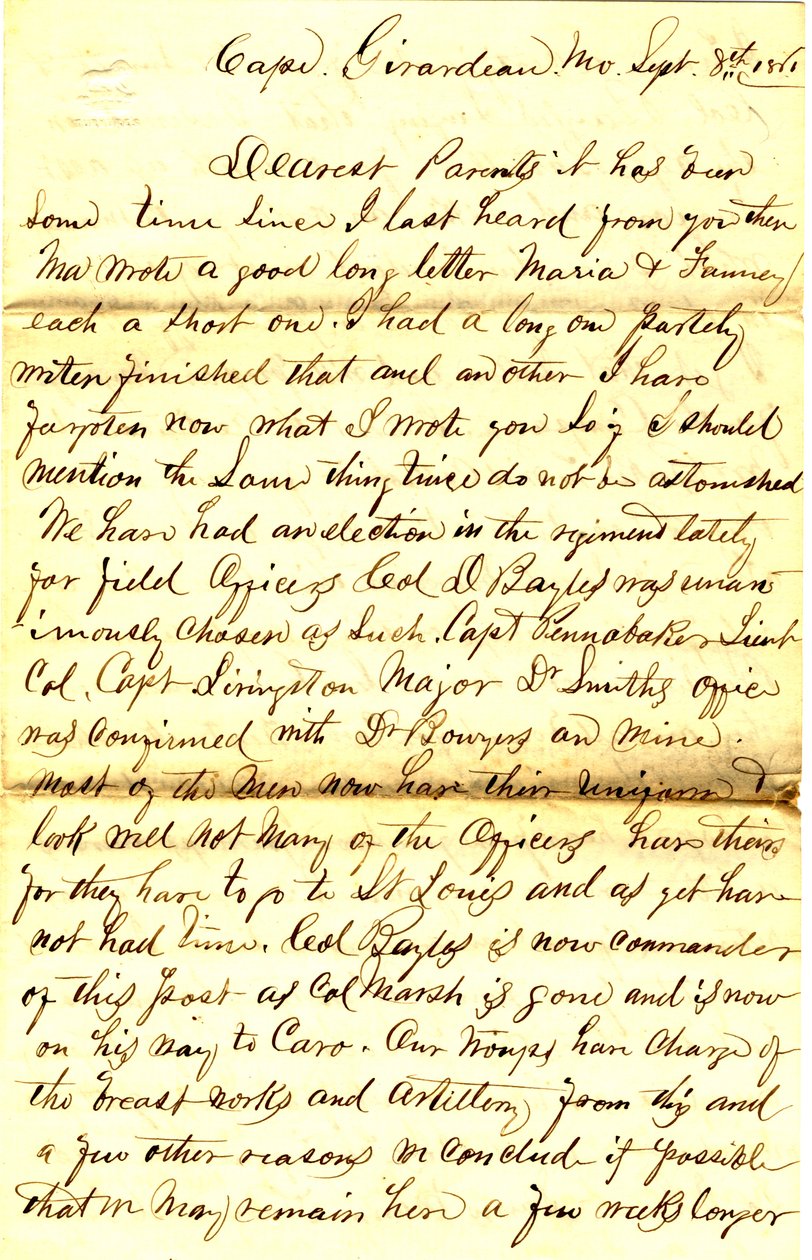 Cape. Girardeau. Mo. Sept. 8th 1861
Dearest Parents it has been
some time since I last heard from you then
Ma wrote a good long letter Maria & Fanney
each a short one. I had a long one partely
writen finished that and another I have
forgoten now what I wrote you so if I should
mention the same thing twice do not be astonished
We have had an election in the regiment lately
for field Officers Col D Bayles was unan
imously chosen as such. Capt Pennabaker Lieut
Col. Capt. Livingston Major Dr Smiths office
was confirmed with Dr Bowyers an mine.
most of the men now have their uniform &
look well not many of the Officers have theirs
for they have to go to St Louis and as yet have
not had time. Col Bayles is now commander
of this post as Col Marsh is gone and is now
on his way to Caro. Our troops have charge of
the breast works and artillery from this and
a few other reasons we conclude if possible
that we may remain here a few weeks longer